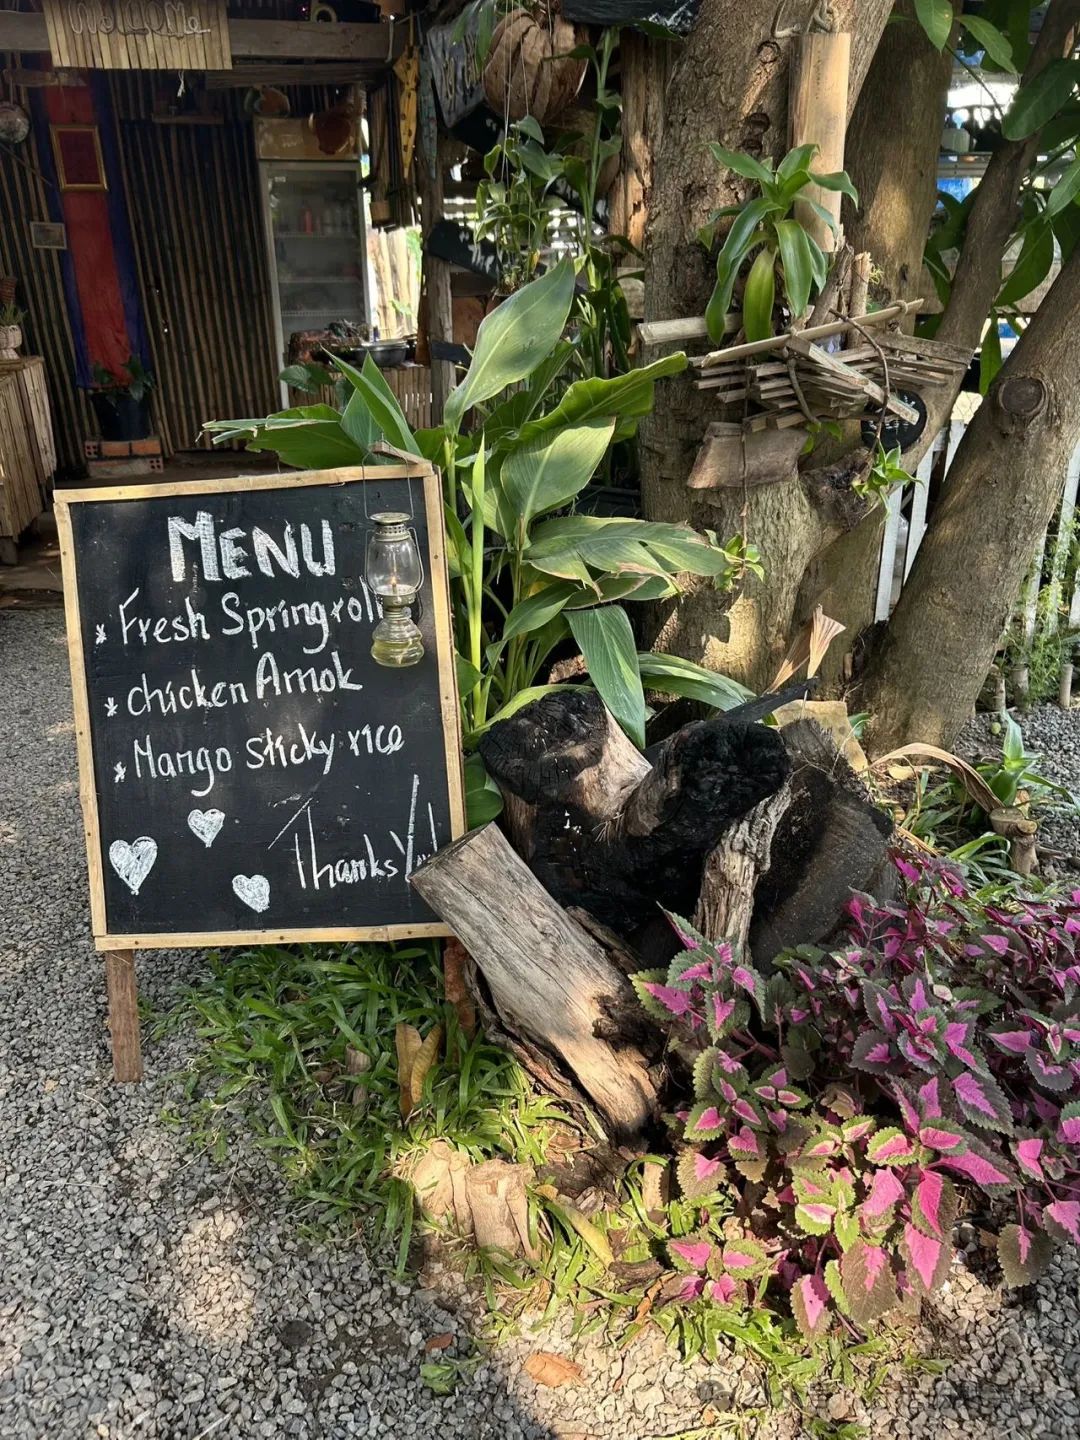 Welcome
MENU
* Fresh Springroll
* chicken Amok
* Mango sticky rice
Thanks You!